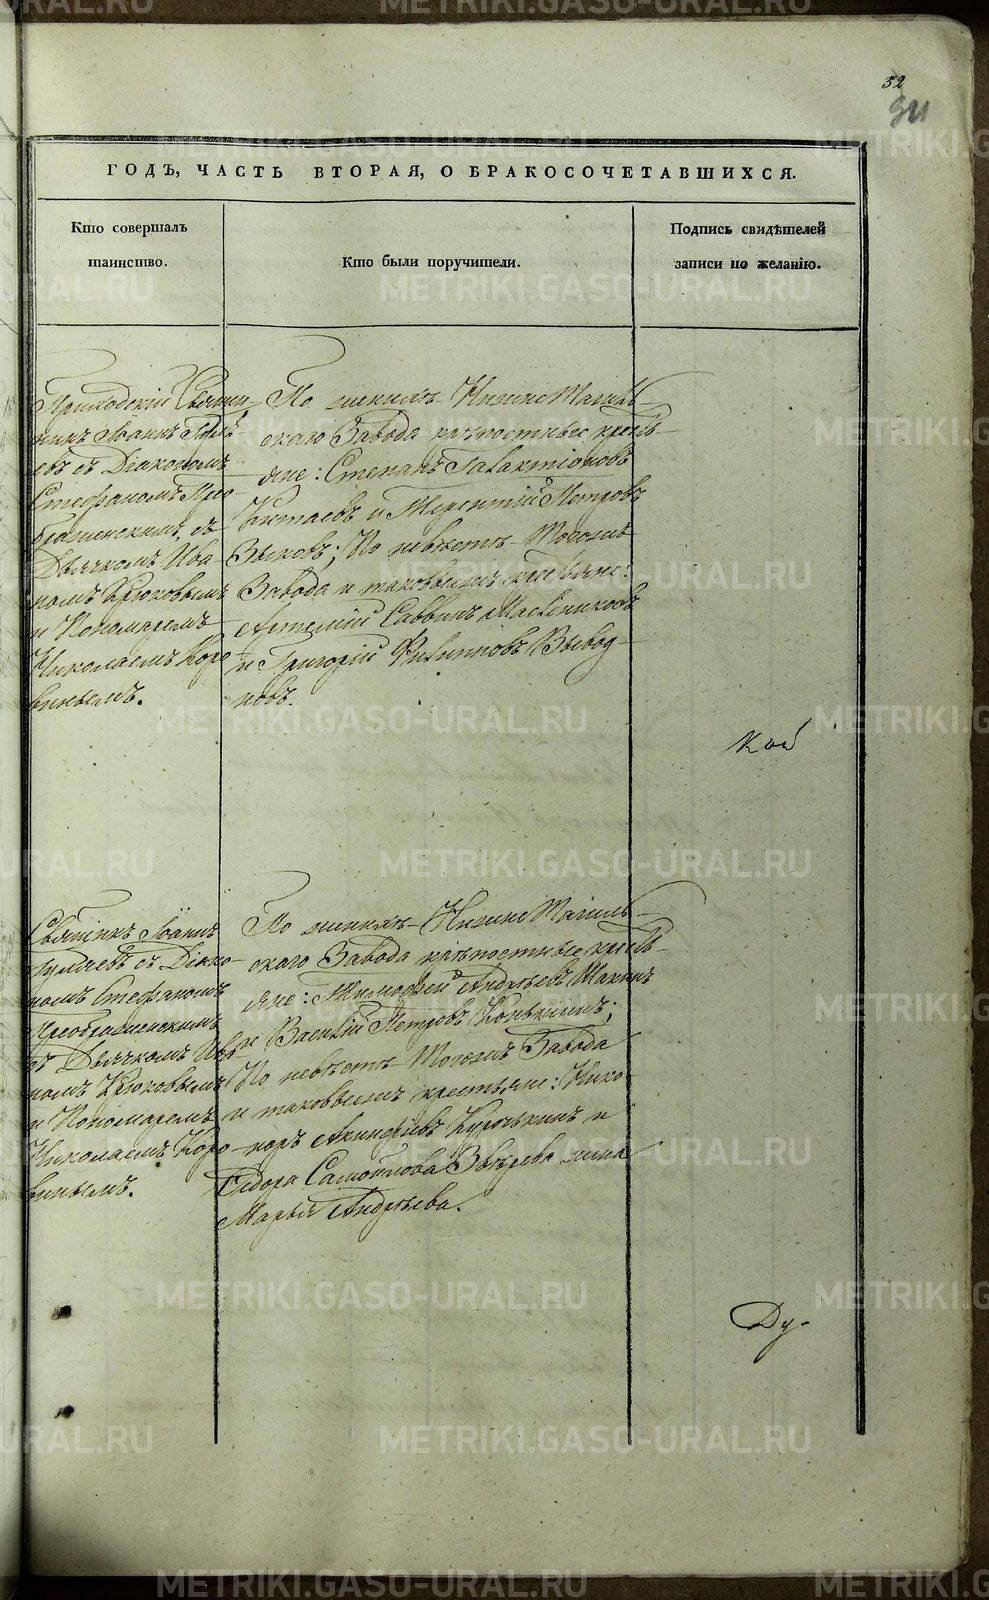 32
34
ГОДЪ, ЧАСТЬ ВТОРАЯ, О БРАКОСОЧЕТАВШИХСЯ.
Кто совершалъ
таинство.
Кто были поручители.
Подпись свидѣтелей
записи по желанію.
Приходскій Священ
никъ Іоаннъ
евъ съ Діакономъ
Стефаномъ Прео-
браженскимъ, съ
Дьячкомъ Ива-
номъ Крюковымъ
и Пономаремъ
Николаемъ Коро
винымъ.
По женихѣ Нижне Тагиль-
скаго Завода крѣпостные кресть-
яне: Степанъ Галактіоновъ
Китаевъ и Терентій Петровъ
Зыковъ; По невѣстѣ Тогожъ
Завода и таковыежъ крестьяне:
Артемій Саввинъ Маслениковъ
и Григорій Филиповъ Вывод-
новъ.
Священикъ Іоаннъ
съ Діако-
номъ Стефаномъ
Преображенскимъ
съ Дьячкомъ Ива
номъ Крюковымъ
и Пономаремъ
Николаемъ Коро
винымъ.
По женихѣ Нижне Тагиль-
скаго Завода крѣпостные кресть-
яне: Тимофей Андреевъ
и Василій Петровъ Конькинъ;
По невѣстѣ Тогожъ Завода
и таковыежъ крестьяне: Нико-
норъ Акинфіевъ Курочкинъ и
Ѳедора Самойлова Звѣрева жена
Марья Андреева.
Ду-
METRIKI.GASO-URAL.RU